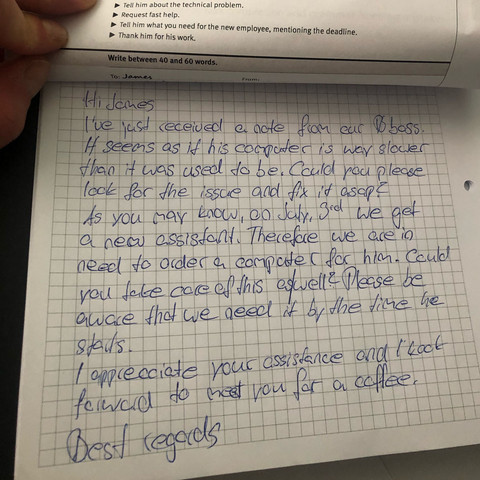 ▶ Tell him about the technical problem.
▶ Request fast help.
▶ Tell him what you need for the new employee, mentioning the deadline.
▶ Thank him for his work.
Write between 40 and 60 words.
To: James From:
Hi James
I've just received a note from our boss.
It seems as if his computer is way slower
than it was used to be. Could you please
look for the issue and fix it asap?
As you may know, on July, 3rd we get
a new assistant. Therefore we are in
need to order a computer for him. Could
you take care of this aswell? Please be
aware that we need it by the time he
starts.
I appreciate your assistance and I look
forward to meet you for a coffee.
Best regards